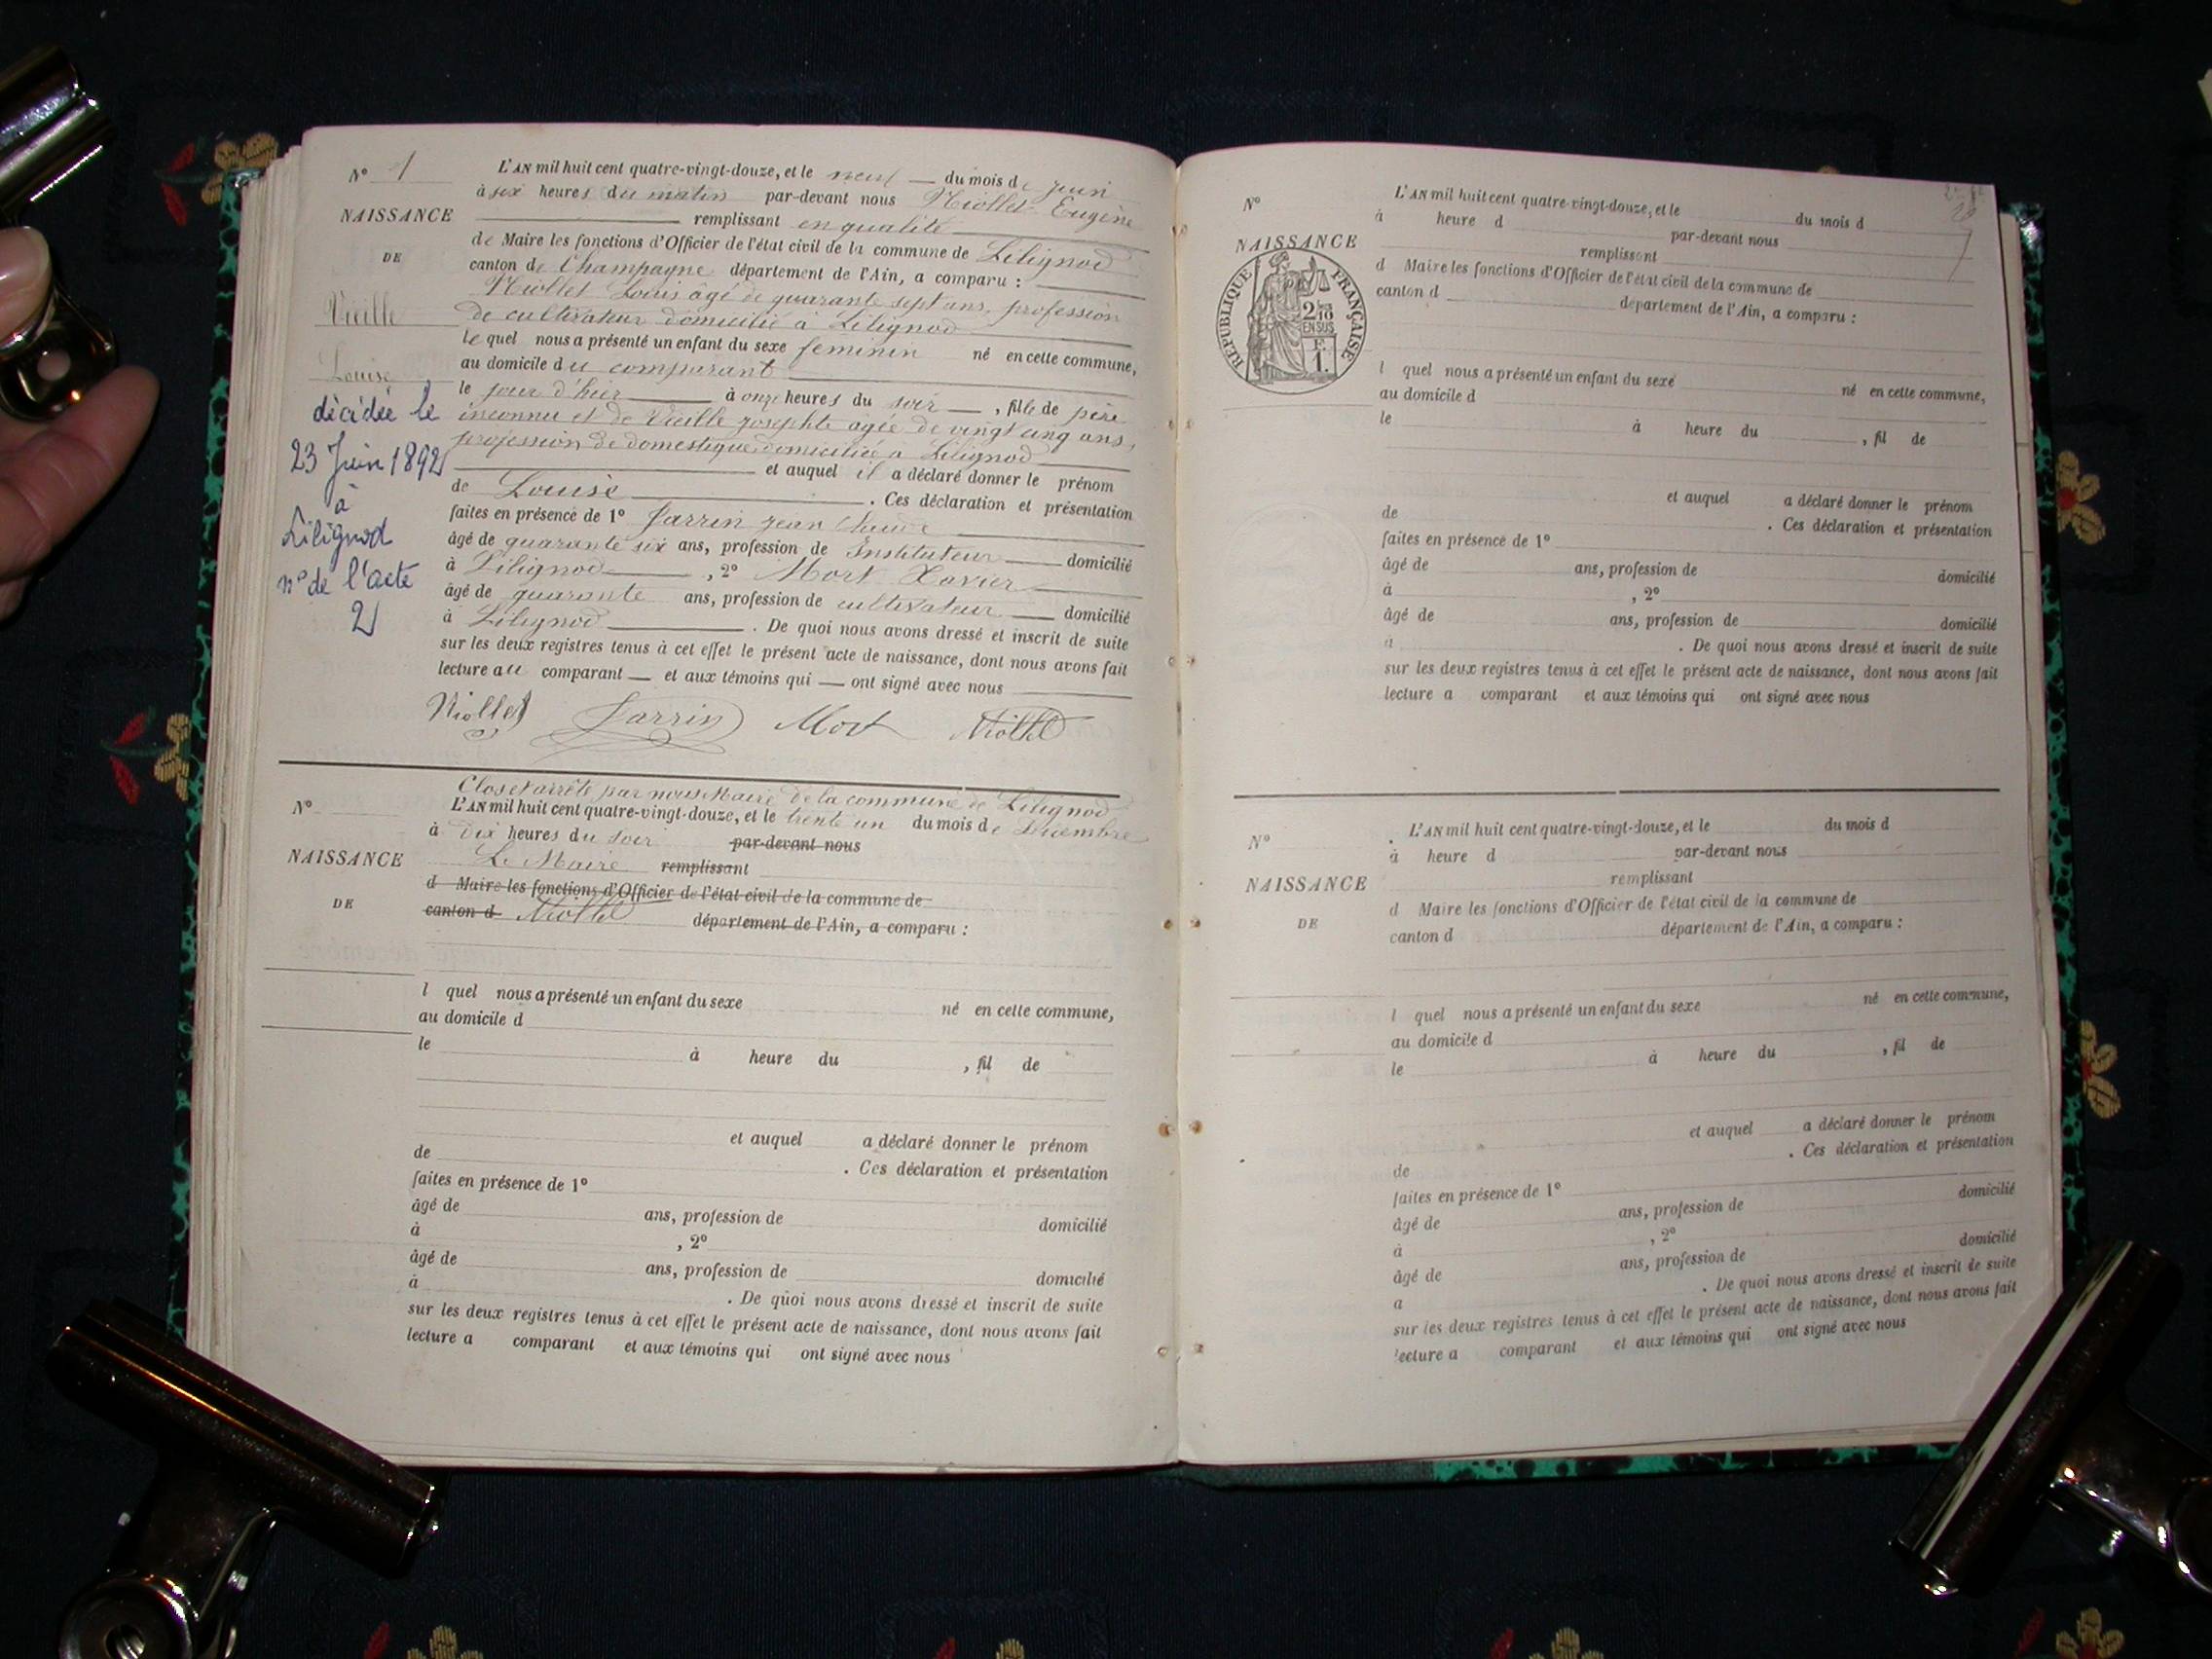 N° 1
NAISSANCE
DE
Vieille
Louise
décédée le
23 Juin 1892
à
Lilignod
n° de l'acte
2
L'AN mil huit cent quatre-vingt-douze, et le neuf du mois de juin
à six heures du matin par-devant nous Niollet Eugène
remplissant en qualité
de Maire les fonctions d'Officier de l'état civil de la commune de Lilignod
canton de Champagne département de l'Ain, a comparu :
Niollet Louis âgé de quarante sept ans, profession
de cultivateur domicilié à Lilignod
le quel nous a présenté un enfant du sexe feminin né en cette commune,
au domicile du comparant
le jour d'hier à onze heures du soir , fille de père
inconnu et de Vieille Josephte agée de vingt cinq ans,
profession de domestique domiciliée a Lilignod
et auquel il a déclaré donner le prénom
de Louise . Ces déclaration et présentation
faites en présence de 1° Jarrin jean Claude
âgé de quarante six ans, profession de Instituteur domicilié
à Lilignod , 2° Mort Xavier
âgé de quarante ans, profession de cultivateur domicilié
à Lilignod . De quoi nous avons dressé et inscrit de suite
sur les deux registres tenus à cet effet le présent acte de naissance, dont nous avons fait
lecture au comparant et aux témoins qui ont signé avec nous
Niollet Jarrin Mort Niollet
Clos et arrêté par nous Maire de la commune de Lilignod
N°
NAISSANCE
DE
L'AN mil huit cent quatre-vingt-douze, et le trente un du mois de Décembre
à dix heures du soir par-devant nous
Le Maire remplissant
d Maire les fonctions d'Officier de l'état civil de la commune de
canton d Niollet département de l'Ain, a comparu :
l quel nous a présenté un enfant du sexe né en cette commune,
au domicile d
le à heure du , fil de
et auquel a déclaré donner le prénom
de . Ces déclaration et présentation
faites en présence de 1°
âgé de ans, profession de domicilié
à , 2°
âgé de ans, profession de domicilié
à . De quoi nous avons dressé et inscrit de suite
sur les deux registres tenus à cet effet le présent acte de naissance, dont nous avons fait
lecture a comparant et aux témoins qui ont signé avec nous
N°
NAISSANCE
RÉPUBLIQUE FRANÇAISE
2/10
EN SUS
F.
1.
L'AN mil huit cent quatre-vingt-douze, et le du mois d
à heure d par-devant nous
remplissant
d Maire les fonctions d'Officier de l'état civil de la commune de
canton d département de l'Ain, a comparu :
l quel nous a présenté un enfant du sexe né en cette commune,
au domicile d
le à heure du , fil de
et auquel a déclaré donner le prénom
de . Ces déclaration et présentation
faites en présence de 1°
âgé de ans, profession de domicilié
à , 2°
âgé de ans, profession de domicilié
à . De quoi nous avons dressé et inscrit de suite
sur les deux registres tenus à cet effet le présent acte de naissance, dont nous avons fait
lecture a comparant et aux témoins qui ont signé avec nous
N°
NAISSANCE
DE
L'AN mil huit cent quatre-vingt-douze, et le du mois d
à heure d par-devant nous
remplissant
d Maire les fonctions d'Officier de l'état civil de la commune de
canton d département de l'Ain, a comparu :
l quel nous a présenté un enfant du sexe né en cette commune,
au domicile d
le à heure du , fil de
et auquel a déclaré donner le prénom
de . Ces déclaration et présentation
faites en présence de 1°
âgé de ans, profession de domicilié
à , 2°
âgé de ans, profession de domicilié
a . De quoi nous avons dressé et inscrit de suite
sur les deux registres tenus à cet effet le présent acte de naissance, dont nous avons fait
lecture a comparant et aux témoins qui ont signé avec nous